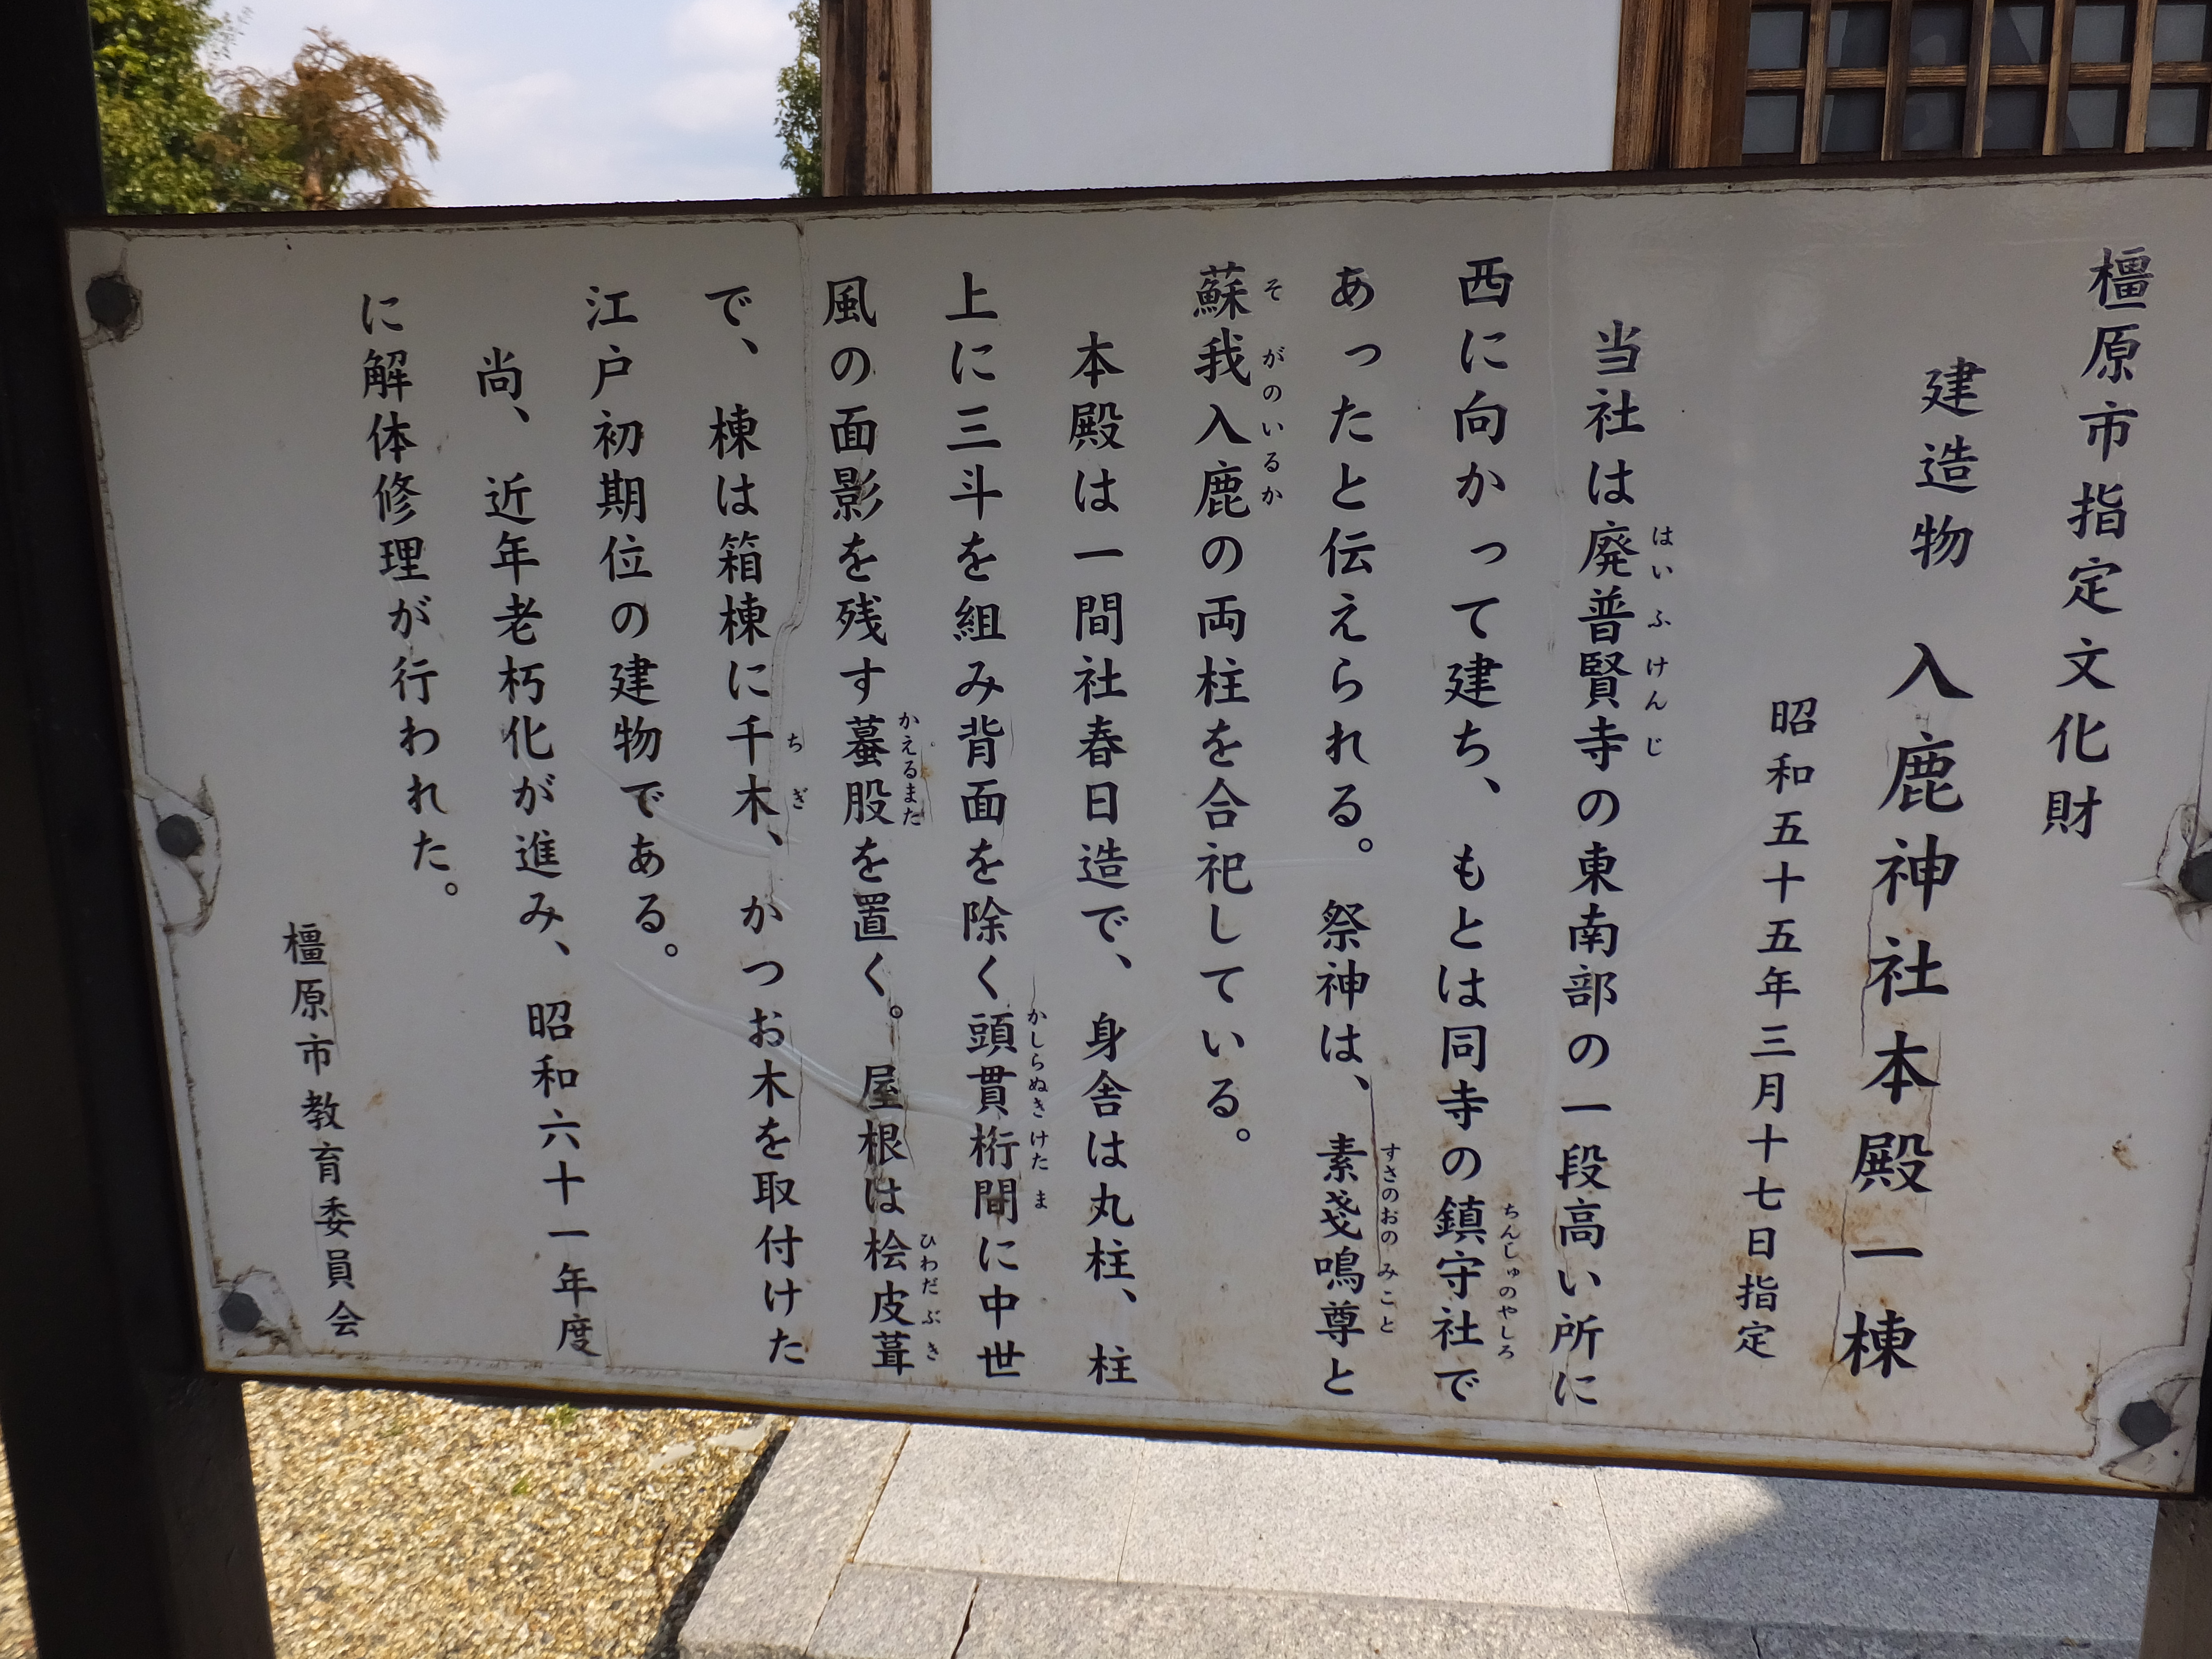 橿原市指定文化財
建造物　入鹿神社本殿一棟
昭和五十五年三月十七日指定
当社は廃普賢寺の東南部の一段高い所に
はいふけんじ
西に向かって建ち、もとは同寺の鎮守社で
ちんじゅのやしろ
あったと伝えられる。祭神は、素戔嗚尊と
すさのおのみこと
蘇我入鹿の両柱を合祀している。
そがのいるか
本殿は一間社春日造で、身舎は丸柱、柱
上に三斗を組み背面を除く頭貫桁間に中世
かしらぬきけたま
風の面影を残す蟇股を置く。屋根は桧皮葺
かえるまた　ひわだぶき
で、棟は箱棟に千木、かつお木を取付けた
ちぎ
江戸初期位の建物である。
尚、近年老朽化が進み、昭和六十一年度
に解体修理が行われた。
橿原市教育委員会